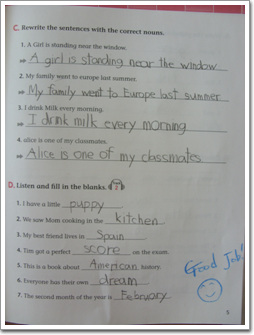 C. Rewrite the sentences with the correct nouns.
1. A Girl is standing near the window.
⇒ A girl is standing near the window
2. My family went to europe last summer.
⇒ My family went to Europe last summer
3. I drink Milk every morning.
⇒ I drink milk every morning
4. alice is one of my classmates.
⇒ Alice is one of my classmates
D. Listen and fill in the blanks.
1. I have a little puppy.
2. We saw Mom cooking in the kitchen.
3. My best friend lives in Spain.
4. Tim got a perfect score on the exam.
5. This is a book about American history.
6. Everyone has their own dream.
7. The second month of the year is February.
Good Job!
5